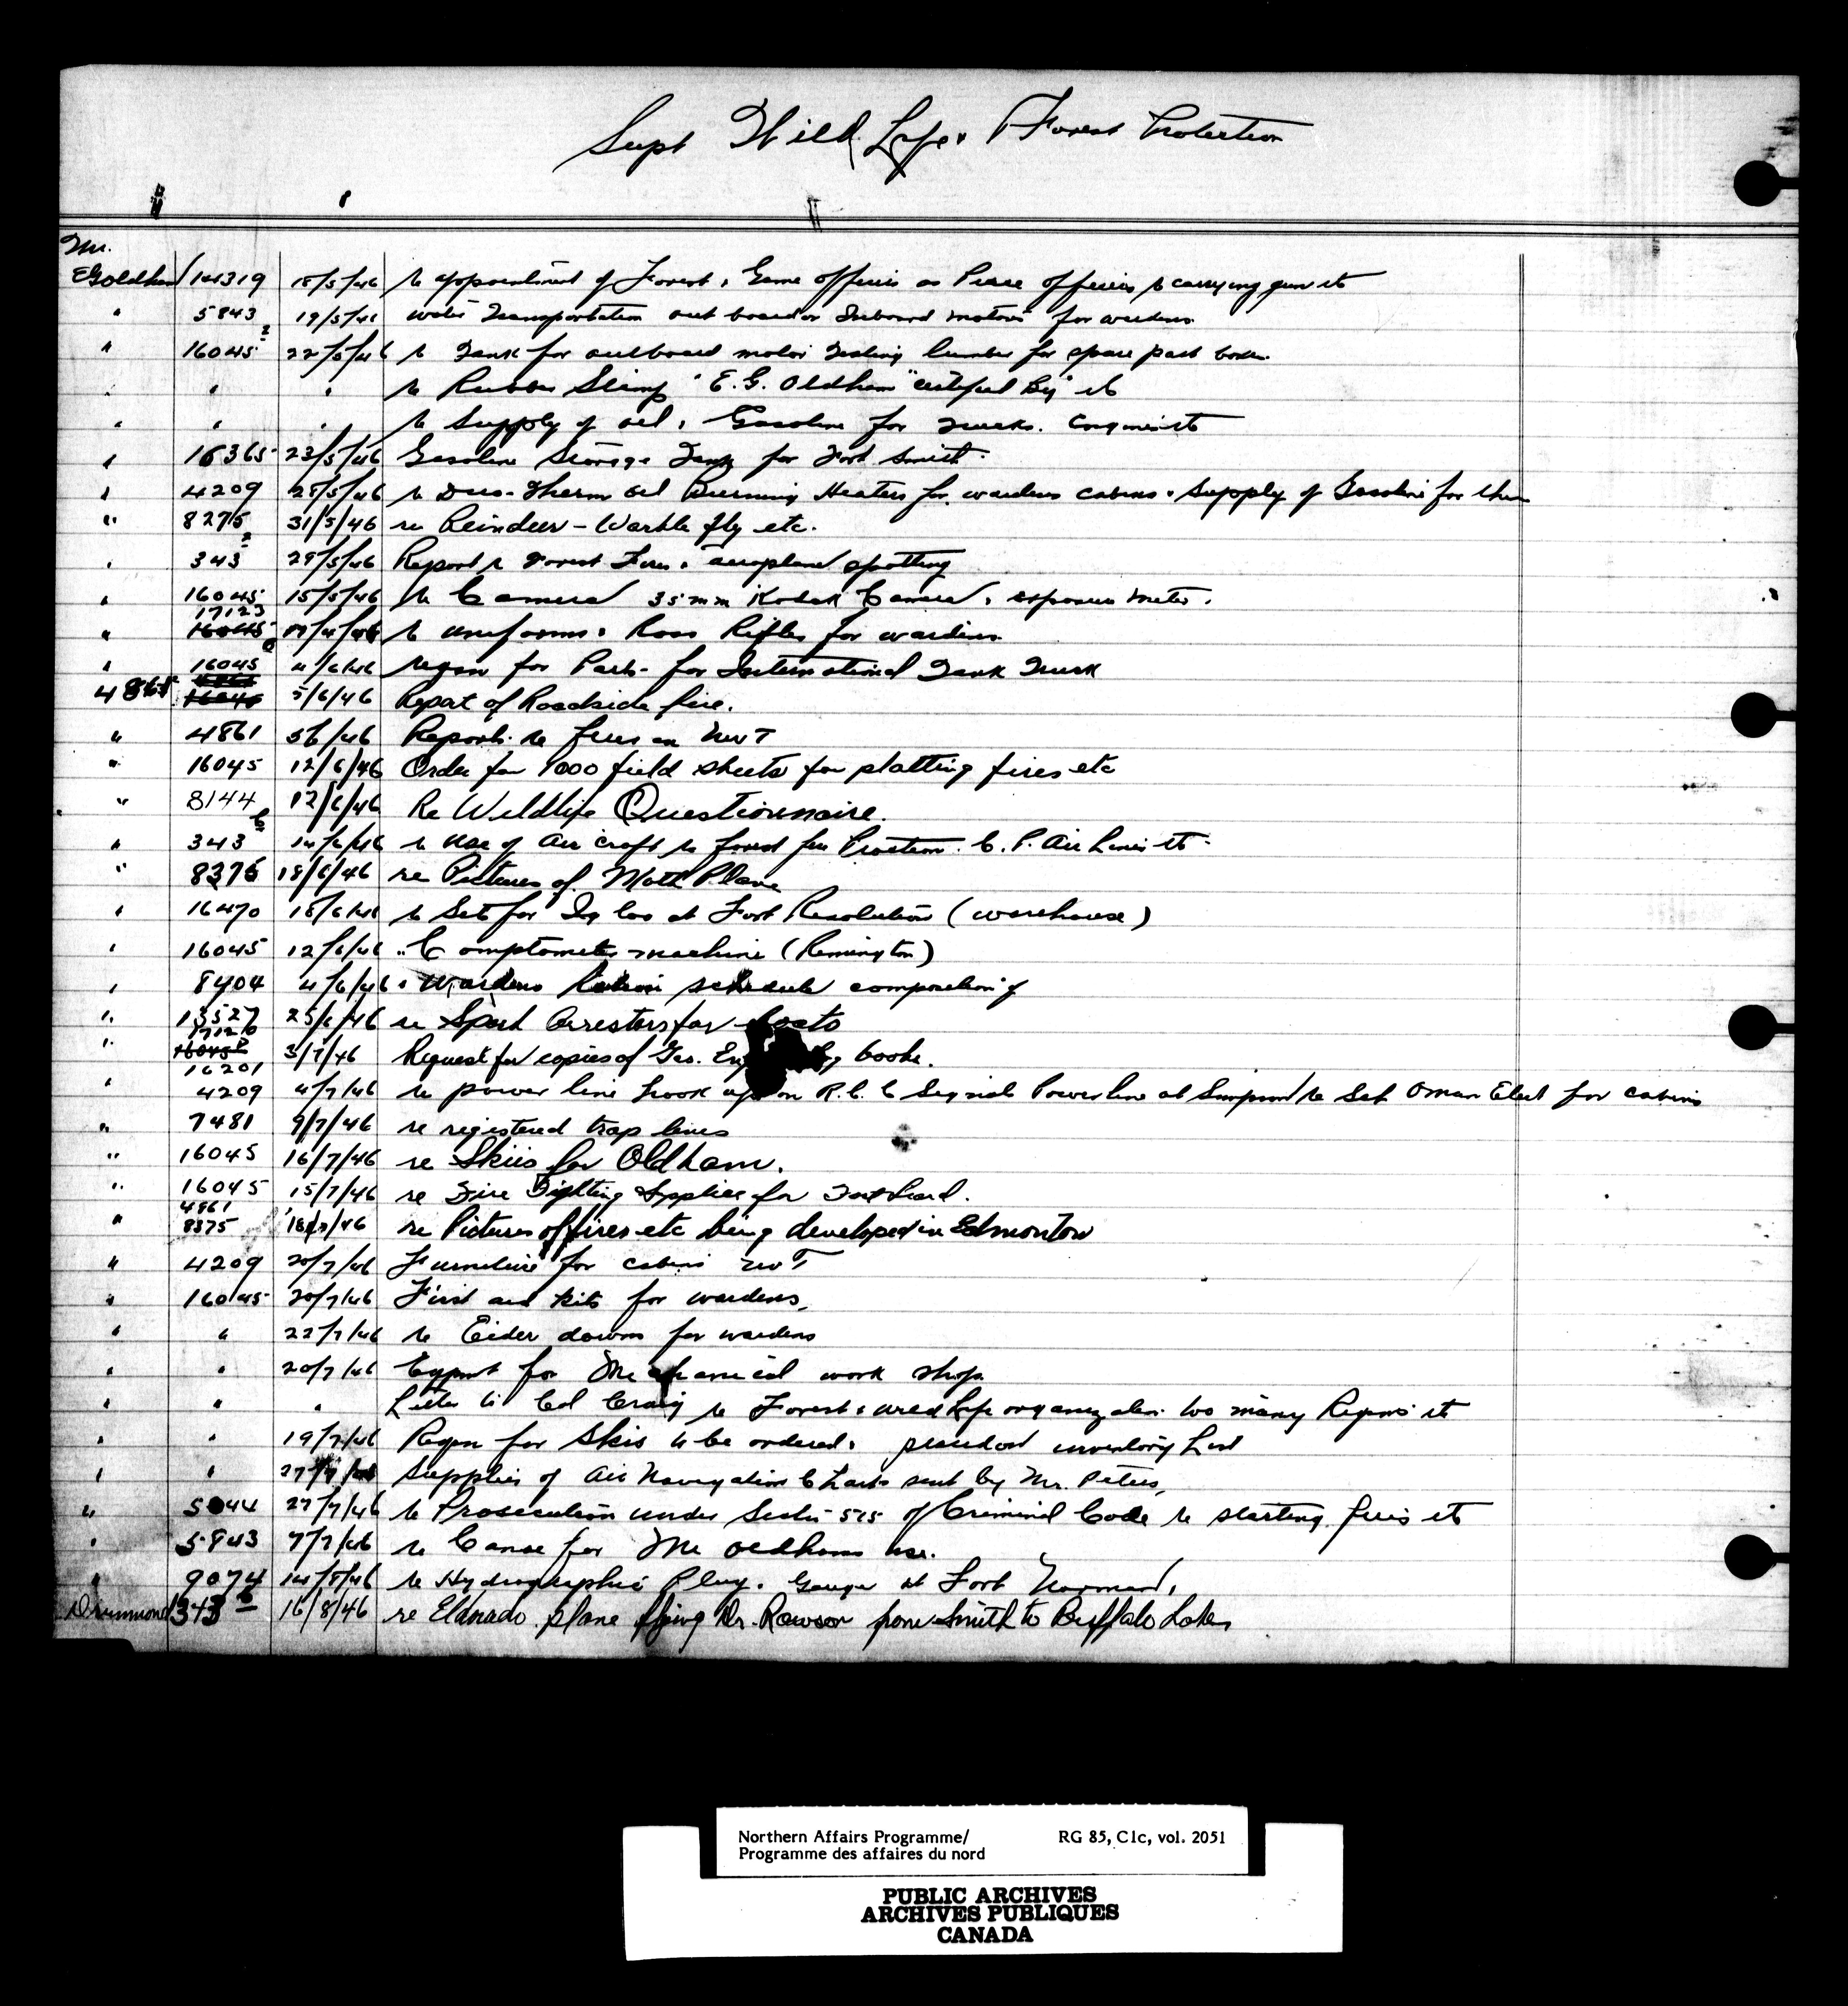 Supt Wild Life & Forest Protection
Mr.
EGoldham 14319 18/5/46 re appointment of Forest & Game officers as Peace officers re carrying guns etc
" 5843 19/5/46 water Transportation outboard or Inboard motors for wardens
" 16045 22/5/46 re Tank for outboard motor Testing lumber for spare part boxes.
" " " re Rubber Stamp "E.G. Oldham" "certified By" etc
" " " re Supply of oil & Gasoline for Trucks.
" 16365 23/5/46 Gasoline Storage Tank for Fort Smith.
" 4209 28/5/46 re Duo-Therm oil Burning Heaters for wardens cabins & Supply of Gasoline for them
" 8275 2 31/5/46 re Reindeer - Warble fly etc.
" 343 29/5/46 Report re Forest Fires & aeroplane spotting
" 16045 15/5/46 re Camera 35 mm Kodak Camera & exposure meter.
" 17123 16045 /4/46 re uniforms & Ross Rifles for wardens
" 16045 4/6/46 reqn for Parts for International Tank Truck
4865 16045 5/6/46 Report of Roadside fire.
" 4861 5/6/46 Reports re fires in NWT
" 16045 12/6/46 Order for 1000 field sheets for platting fires etc
" 8144 12/6/46 Re Wildlife Questionnaire.
" 343 6 14/6/46 re use of Air craft re forest fire Protection. C. P. Air Lines etc.
" 8375 18/6/46 re Pictures of Plane
" 16470 18/6/46 re Sets for at Fort Resolution (warehouse)
" 16045 12/6/46 " Comptometer machine (Remington)
" 8404 4/6/46 " Wardens Ration schedule composition of
" 13527 25/6/46 re Spark Arresters for boats
" 17126 16045 3/7/46 Request for copies of Geo. books.
16201
" 4209 4/7/46 re power line hook up on R.C.C Signals Powerline at Simpson re Set Elect for cabins
" 7481 9/7/46 re registered trap lines
" 16045 16/7/46 re Skiis for Oldham.
" 16045 15/7/46 re Fire Fighting Supplies for Fort Liard.
" 4861 8375 18/7/46 re Pictures of fires etc being developed in Edmonton
" 4209 20/7/46 Furniture for cabins NWT
" 16045 20/7/46 First aid kits for wardens,
" " 22/7/46 re Eider downs for wardens
" " 20/7/46 Eqpmt for Mechanical work shop
" " " Letter to Col Craig re Forest & Wild Life organization too many Reqns etc
" " 19/7/46 Reqn for Skis to be ordered & inventory List
" " 27/7/46 Supplies of Air Navigation Charts sent by Mr. Peters,
" 5044 27/7/46 re Prosecution under Section 515 of Criminal Code re starting fires etc
" 5843 7/7/46 re Canoe for Mr Oldhams use.
" 9074 14/8/46 re Hydrographic Gauge at Fort Norman,
Drummond 343 6 16/8/46 re Eldorado plane flying Dr. Rawson from Smith to Buffalo Lakes
Northern Affairs Programme/ RG 85, C1c, vol. 2051
Programme des affaires du nord
PUBLIC ARCHIVES
ARCHIVES PUBLIQUES
CANADA